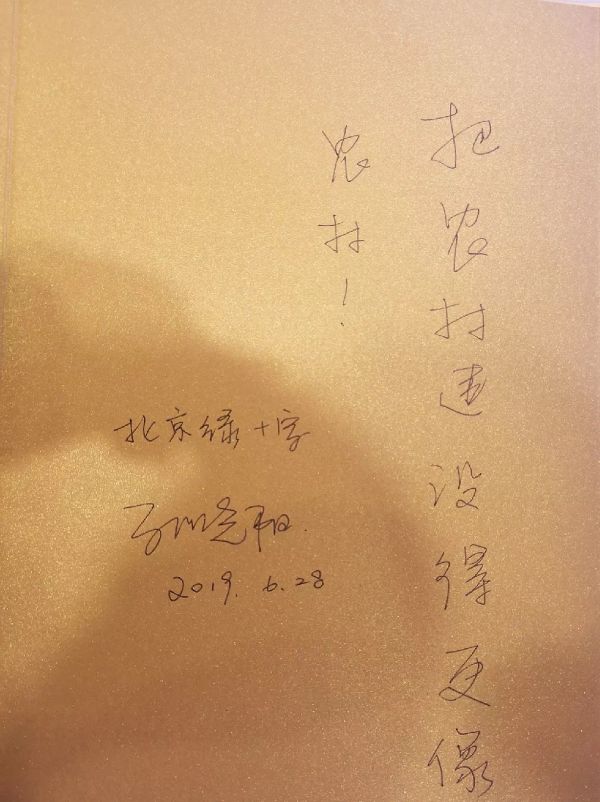 把农村建设得更像
农村！
北京绿十字
2019.6.28